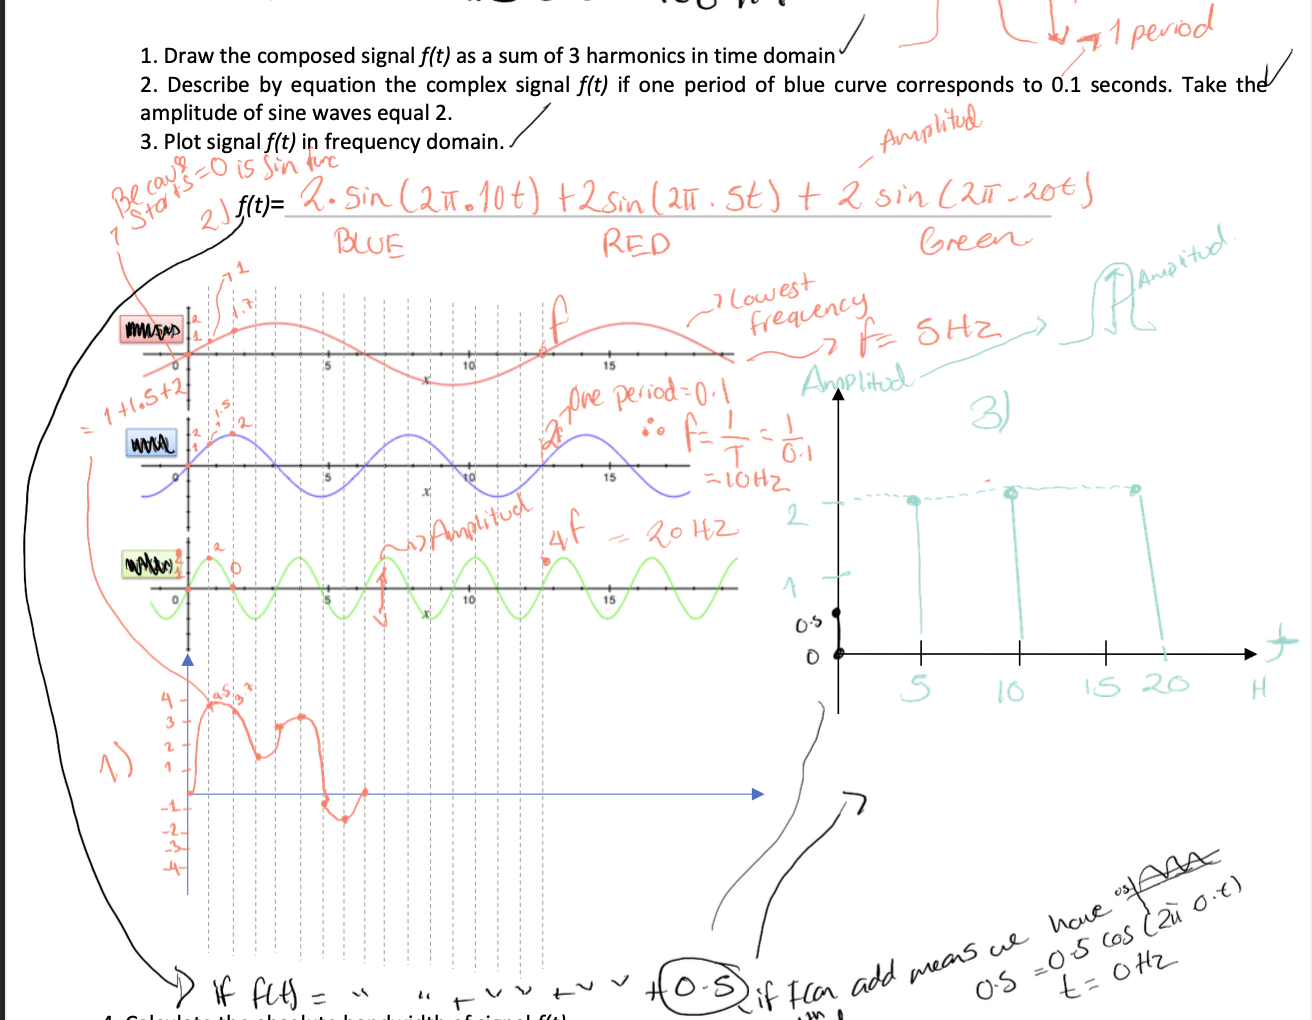 → 1 period
1. Draw the composed signal f(t) as a sum of 3 harmonics in time domain
2. Describe by equation the complex signal f(t) if one period of blue curve corresponds to 0.1 seconds. Take the
amplitude of sine waves equal 2.
3. Plot signal f(t) in frequency domain.
Amplitud
Because
starts=0 is sin func
2) f(t)= 2. sin(2π.10t) +2sin(2π . 5t) + 2 sin(2π-20t)
BLUE RED Green
Amplitud
1
1.7
f
Lowest
frequency
f= 5Hz
2
1
0 5 10 15
x
= 1+1.5+2
Amplitud
3)
One period=0.1
2f
∴ f= 1/T = 1/0.1
=10Hz
1.5
2
2
1
0 5 10 15
x
Amplitud
4f = 20 Hz
2
0
2
1
0 5 10 15
x
2
1
0.5
0
5 10 15 20 H
f
1)
4
3
2
1
-1
-2
-3
-4
4.5
3.7
if f(t) = " " + " " + " " +0.5
if I can add means we have
0.5 =0.5 cos (2π 0.t)
t= 0Hz